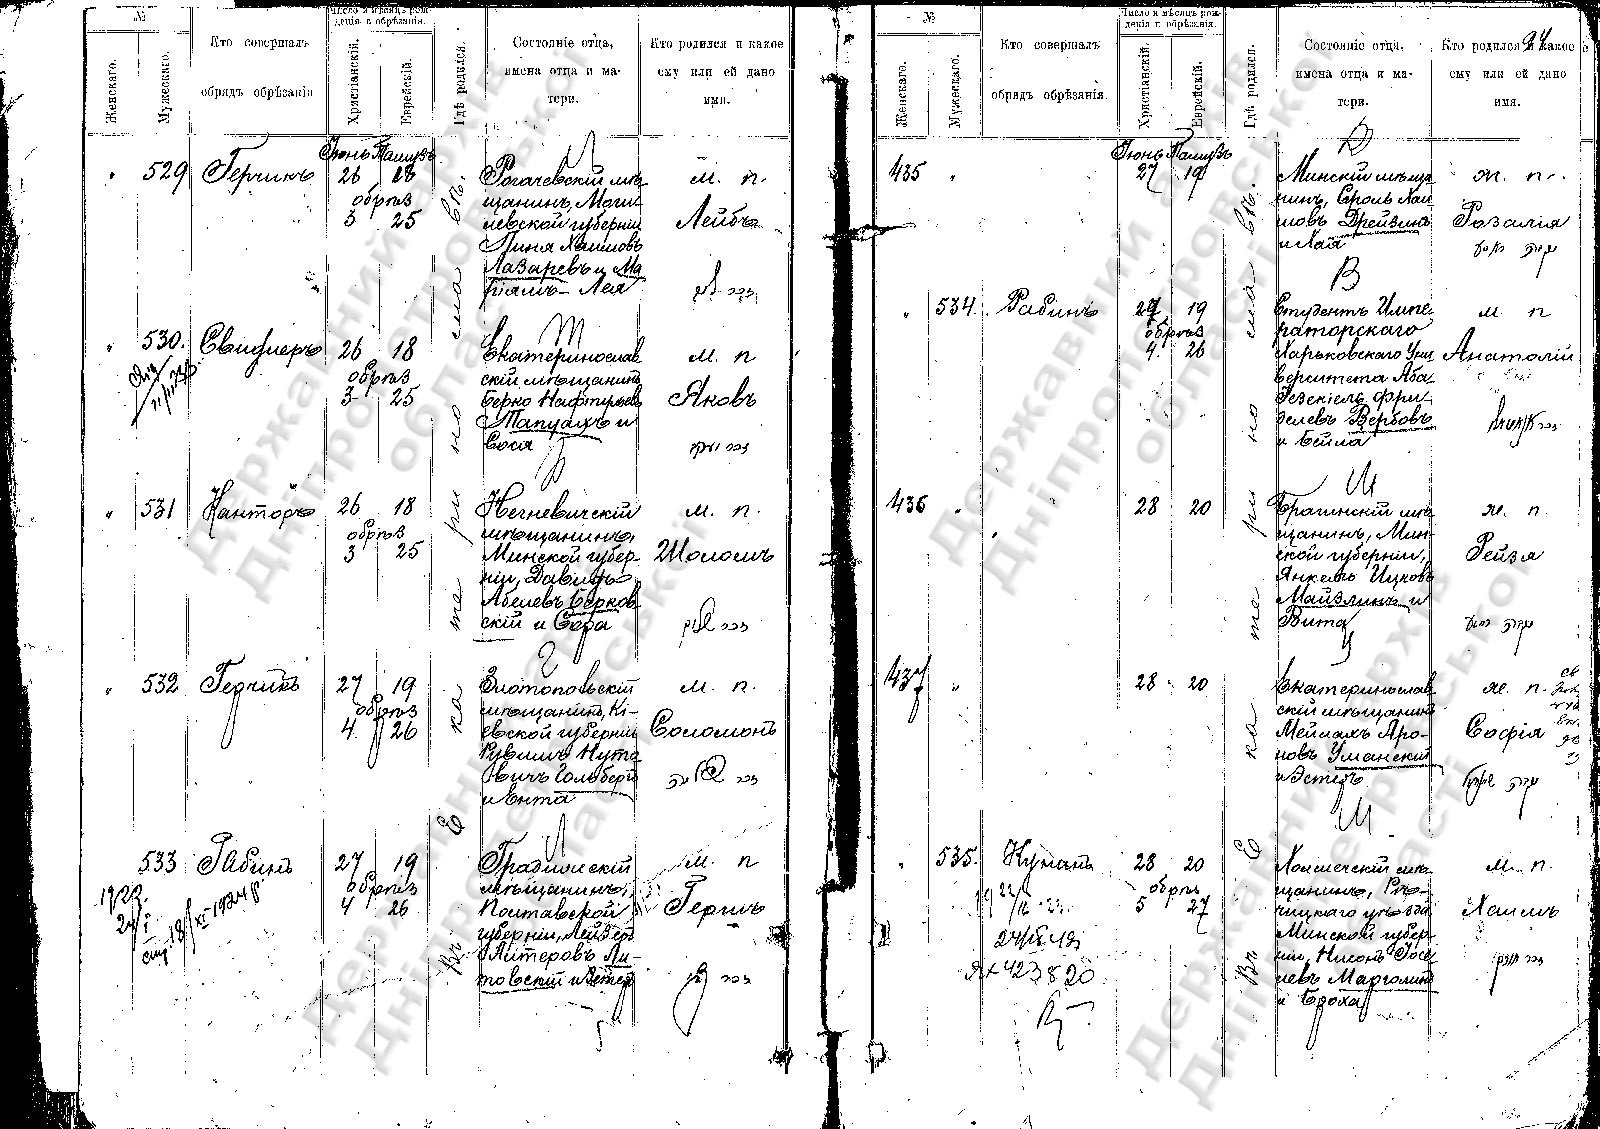 №
Женскаго.
Мужескаго.
Кто совершалъ
обрядъ обрѣзанія
Число и мѣсяцъ рож-
денія и обрѣзанія.
Христіанскій.
Еврейскій.
Гдѣ родился.
Состояніе отца,
имена отца и ма-
тери.
Кто родился и какое
ему или ей дано
имя.
Въ Екатеринославѣ.
529 Герчикъ
Іюнь Тамузъ
26 18
обрѣз
3 25
Рогачевскій мѣ-
щанинъ, Моги-
левской губерніи
Пиня Хаимовъ
Лазаревъ и Ма-
ріямъ-Лея
м. п.
Лейбъ
530. Свидлеръ
26 18
обрѣз
3 25
Екатеринослав-
скій мѣщанинъ
Берко Нафтулевъ
Тапуахъ и
Сося
м. п.
Яковъ
531 Канторъ
26 18
обрѣз
3 25
Негневичскій
мѣщанинъ,
Минской губер-
ніи, Давидъ
Абелевъ Берков-
скій и Сора
м. п.
Шоломъ
532 Герчикъ
27 19
обрѣз
4. 26
Златопольскій
мѣщанинъ, Кі-
евской губерніи
Рувимъ Нута-
овичъ Гольдберг
и Ента
м. п.
Соломонъ
533 Рабинъ
27 19
обрѣз
4 26
1922.
18/XI 1924 г
Градижскій
мѣщанинъ,
Полтавской
губерніи, Лейзеръ
Алтеровъ Ли-
товскій и Эстер
м. п
Гершъ
94
№
Женскаго.
Мужескаго.
Кто совершалъ
обрядъ обрѣзанія.
Число и мѣсяцъ рож-
денія и обрѣзанія.
Христіанскій.
Еврейскій.
Гдѣ родился.
Состояніе отца,
имена отца и ма-
тери.
Кто родился и какое
ему или ей дано
имя.
Въ Екатеринославѣ.
435
Іюнь Тамузъ
27 19
Минскій мѣща-
нинъ, Сроль Хаи-
мовъ Дрейзинъ
и Хая
ж. п.
Розалія
534. Рабинъ
27 19
обрѣз
4. 26
Студентъ Импе-
раторскаго
Харьковскаго Уни-
верситета Аба-
Іезекіель Фри-
делевъ Вербовъ
и Бейла
м п
Анатолій
436
28 20
Брагинскій мѣ-
щанинъ, Мин-
ской губерніи,
Янкель Ицковъ
Майзлинъ и
Вита
ж. п.
Рейзя
437
28 20
Екатеринослав-
скій мѣщанинъ
Мейлахъ Аро-
новъ Уманскій
и Эстеръ
ж. п.
Софія
535.
28 20
обрѣз
5 27
ЯХ 423820
Холмечскій мѣ-
щанинъ, Рѣ-
чицкаго уѣзда
Минской губер-
ніи, Нисонъ Іосе-
левъ Марголинъ
и Броха
м. п.
Хаимъ
Державний архів
Дніпропетровської області